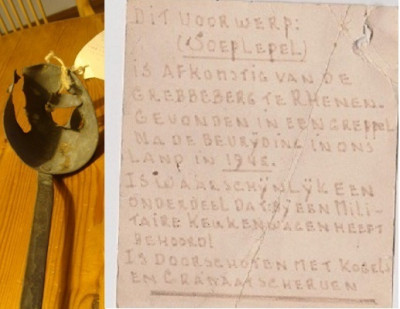 DIT VOORWERP:
(SOEPLEPEL)
IS AFKOMSTIG VAN DE
GREBBEBERG TE RHENEN.
GEVONDEN IN EEN GREPPEL
NA DE BEVRYDING IN ONS
LAND IN 1945.
IS WAARSCHYNLYK EEN
ONDERDEEL DAT BY EEN MILI-
TAIRE KEUKENWAGEN HEEFT
BEHOORD!
IS DOORSCHOTEN MET KOGELS
EM GRANAATSCHERVEN